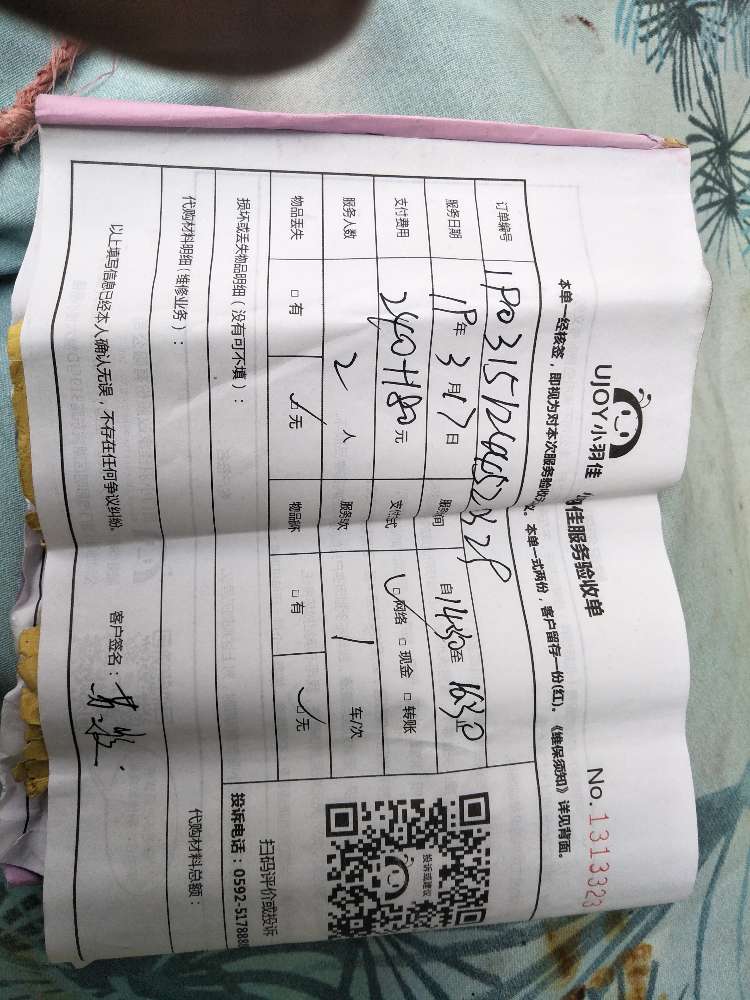 UJOY小羽佳
佳服务验收单
No.1313323
本单一经核签，即视为对本次服务验收 。本单一式两份，客户留存一份(红)。《维保须知》详见背面。
订单编号
服务日期 18年3月17日 服务 间 自14:30至16:30
支付费用 240+180元 支付 式 网络 □现金 □转账
服务人数 2人 服务 次 1 车/次
物品丢失 □有 ✓无 物品 坏 □有 ✓无
损坏或丢失物品明细（没有可不填）：
代购材料明细(维修业务)： 代购材料总额：
以上填写信息已经本人确认无误，不存在任何争议纠纷。 客户签名：
投诉或建议
扫码评价或投诉
投诉电话：0592-5178888